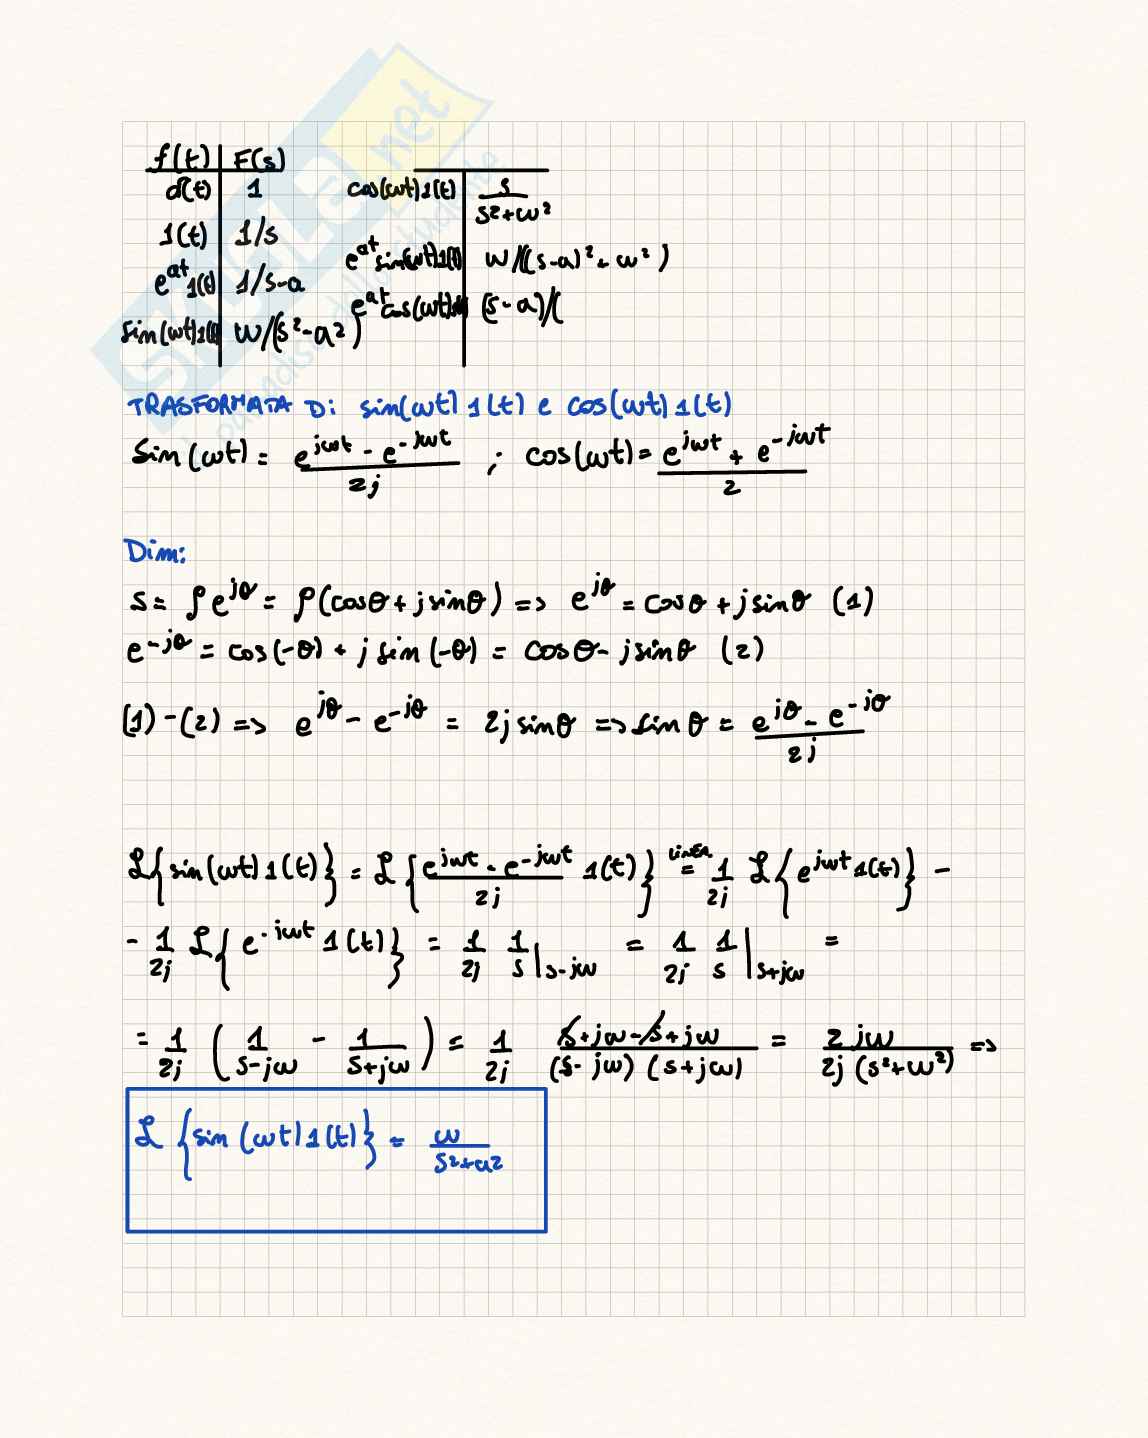 f(t) | F(s)
δ(t) | 1
1(t) | 1/s
e^{at} 1(t) | 1/s-a
sin(ωt)1(t) | ω/(s²-a²)
cos(ωt)1(t) | s/(s²+ω²)
e^{at} sin(ωt)1(t) | ω/((s-a)²+ω²)
e^{at} cos(ωt)1(t) | (s-a)/(
TRASFORMATA Di sin(ωt)1(t) e cos(ωt)1(t)
sin(ωt) = (e^{jωt} - e^{-jωt})/2j ; cos(ωt) = (e^{jωt} + e^{-jωt})/2
Dim:
s = ρe^{jθ} = ρ(cosθ + j sinθ) => e^{jθ} = cosθ + j sinθ (1)
e^{-jθ} = cos(-θ) + j sin(-θ) = cosθ - j sinθ (2)
(1) - (2) => e^{jθ} - e^{-jθ} = 2j sinθ => sinθ = (e^{jθ} - e^{-jθ})/2j
ℒ{sin(ωt)1(t)} = ℒ{(e^{jωt} - e^{-jωt})/2j 1(t)} LINEA. = 1/2j ℒ{e^{jωt} 1(t)} -
- 1/2j ℒ{e^{-jωt} 1(t)} = 1/2j 1/s |_{s-jω} = 1/2j 1/s |_{s+jω} =
= 1/2j (1/(s-jω) - 1/(s+jω)) = 1/2j (s+jω-s+jω)/((s-jω)(s+jω)) = 2jω/(2j(s²+ω²)) =>
ℒ{sin(ωt)1(t)} = ω/(s²+ω²)
SKUOLA.net